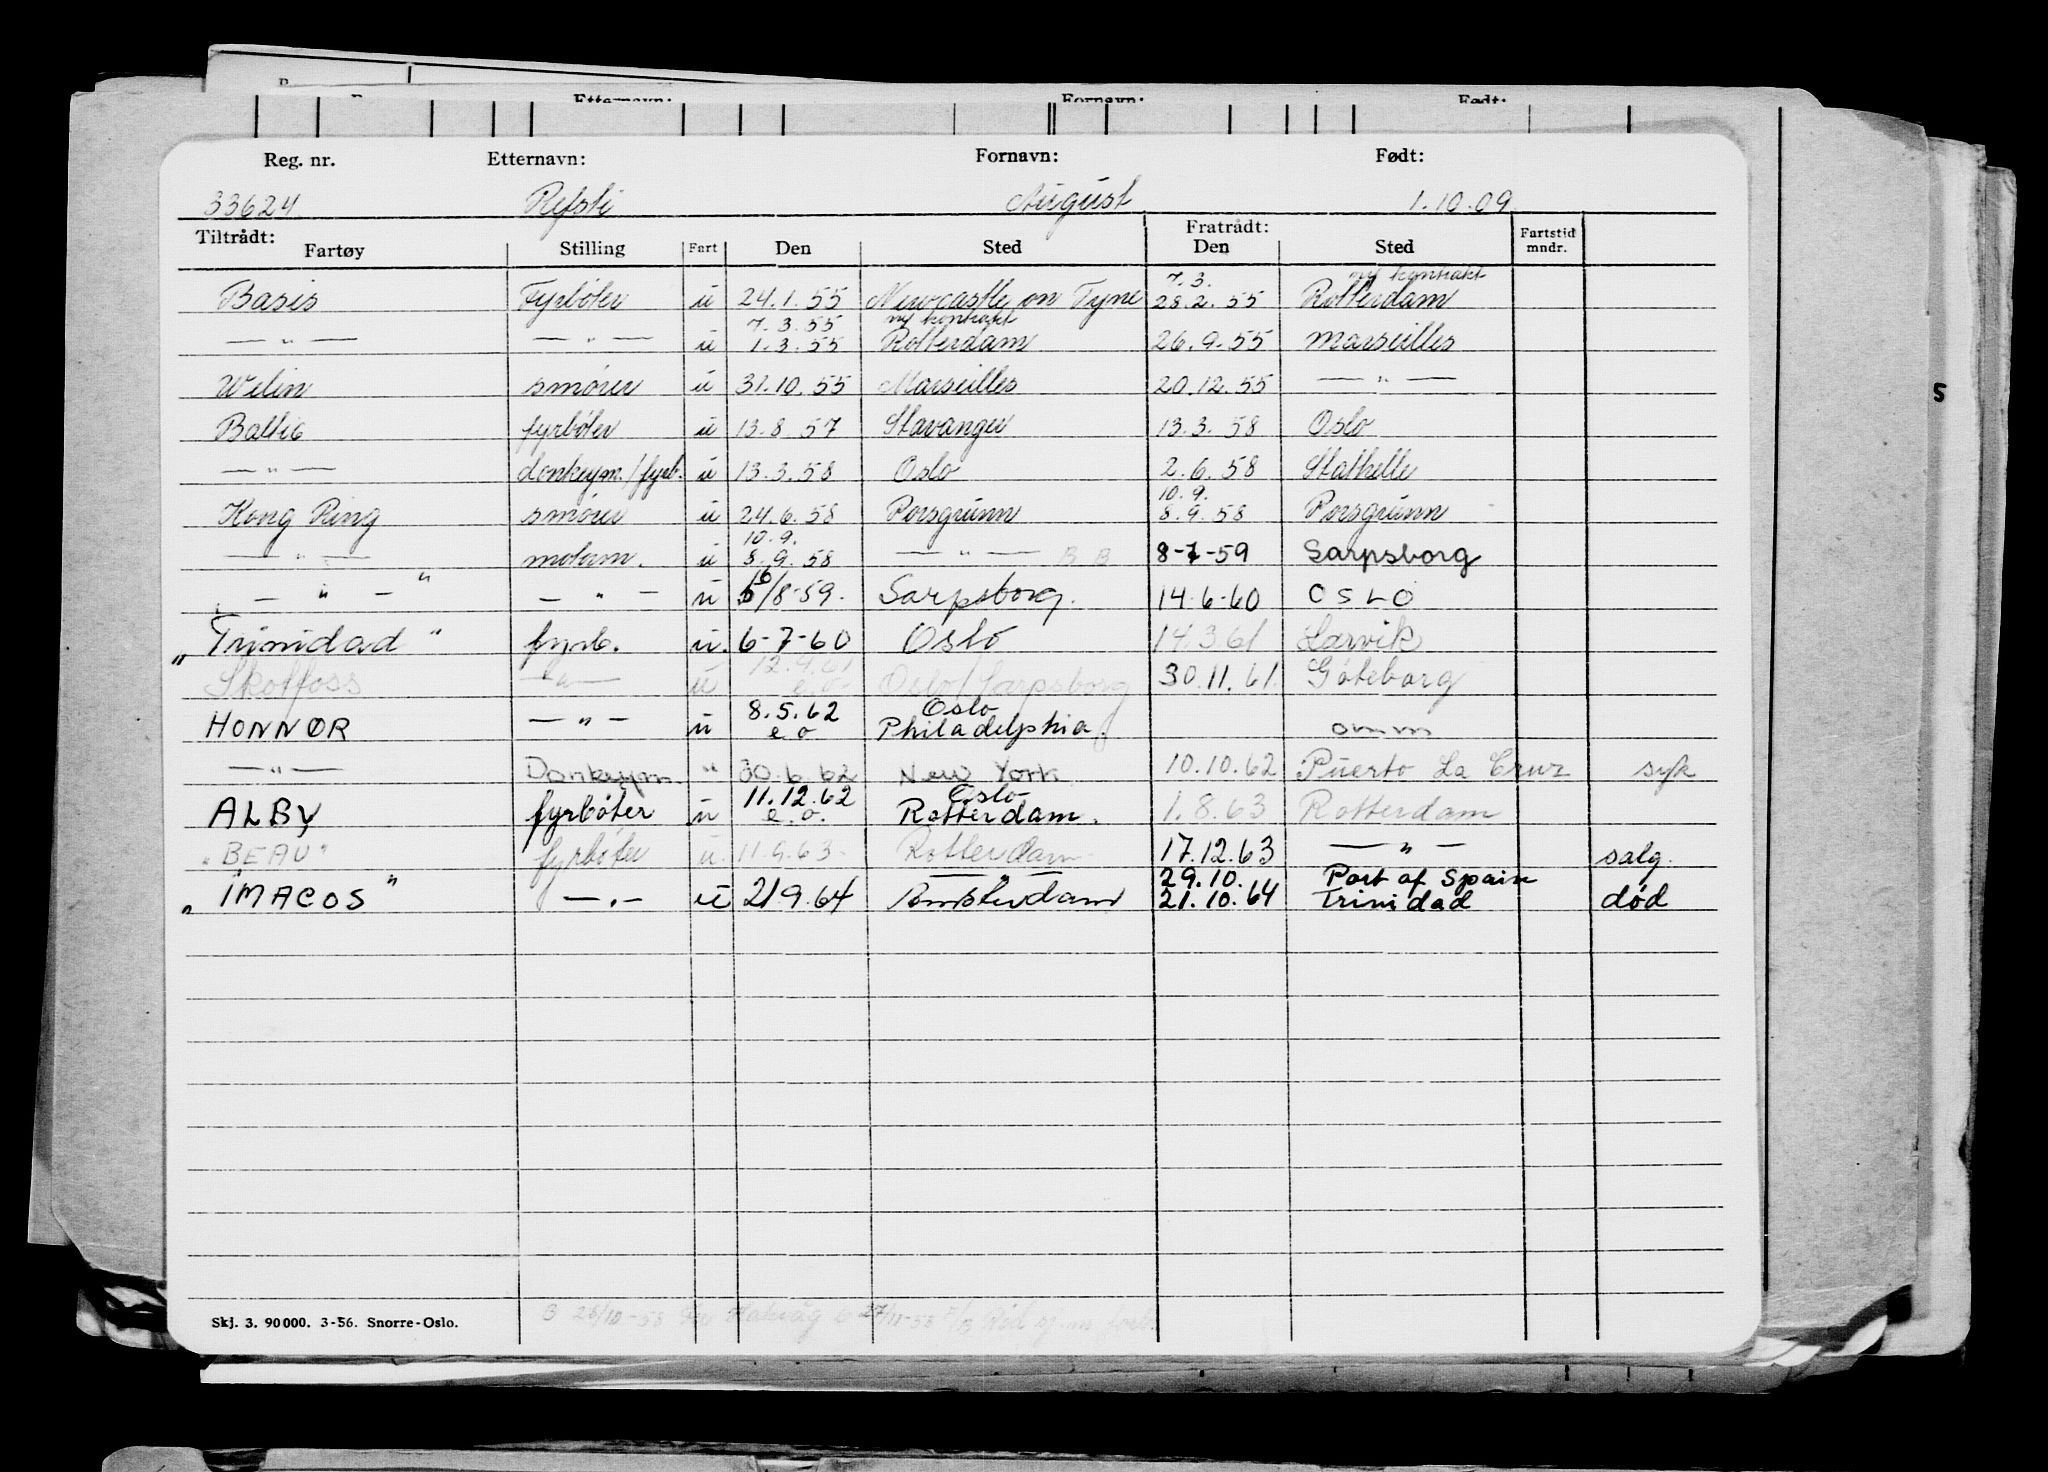 Etternavn: Fornavn: Født:
Reg. nr. Etternavn: Fornavn: Født:
33624 Refsti August 1.10.09
Tiltrådt: Fratrådt:
Fartøy Stilling Fart Den Sted Den Sted Fartstid mndr.
7.3. ny kontrakt
Basis Fyrbøter u 24.1.55 Newcastle on Tyne 28.2.55 Rotterdam
7.3.55 ny kontrakt
— " — — " — u 1.3.55 Rotterdam 26.9.55 Marseilles
Welin smører u 31.10.55 Marseilles 20.12.55 — " —
Baltic fyrbøter u 13.8.57 Stavanger 13.3.58 Oslo
— " — donkeym./fyrb. u 13.3.58 Oslo 2.6.58 Stathelle
10.9.
Kong Ring smører u 24.6.58 Porsgrunn 8.9.58 Porsgrunn
10.9.
— " — motorm. u 8.9.58 — " — B B 8-7-59 Sarpsborg
— " — " — " — u /8-59. Sarpsborg. 14-6-60 OSLO
„Trinidad" fyrb. u. 6-7-60 Oslo 14.3.61 Larvik
12.4.61
Skotfoss — " — u e.o. Oslo/Sarpsborg 30.11.61. Göteborg
8.5.62 Oslo
HONNØR — " — u e.o. Philadelphia. omm
— " — Donkeym. " 30.6.62 New York 10.10.62 Puerto La Cruz syk
11.12.62 Oslo
ALBY fyrbøter u e.o. Rotterdam. 1.8.63 Rotterdam
"BEAU" fyrbøter u. 11.9.63. Rotterdam 17.12.63 — " — salg.
— " — 29.10. Port of Spain
„IMACOS" — " — u 21.9.64 Amsterdam 21.10.64 Trinidad død
S
Skj. 3. 90 000. 3-56. Snorre-Oslo.
B 23/10-58 27/11-58